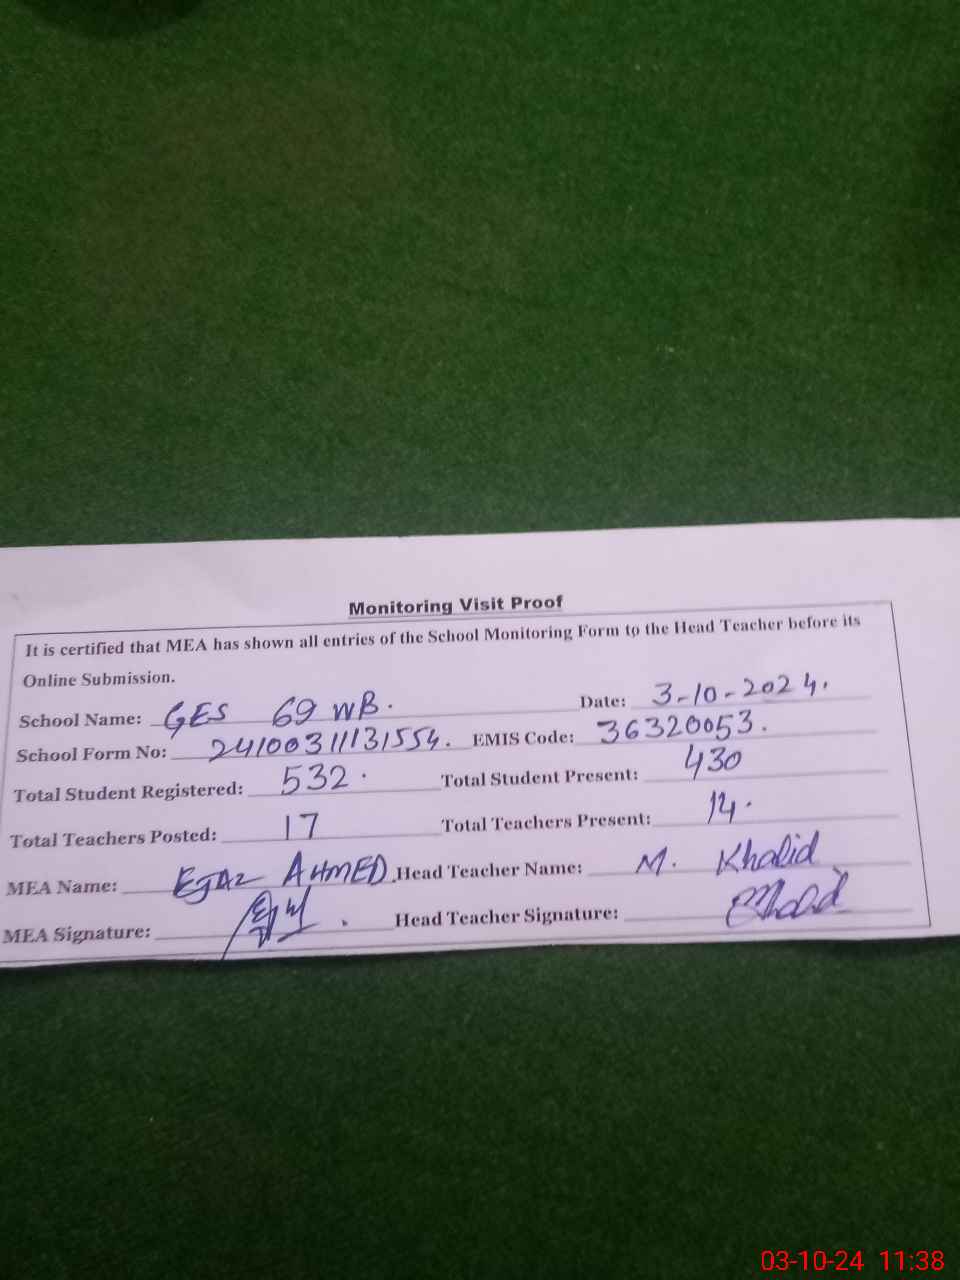 Monitoring Visit Proof
It is certified that MEA has shown all entries of the School Monitoring Form to the Head Teacher before its
Online Submission.
School Name: GES 69 WB. Date: 3-10-2024.
School Form No: 24100311131554. EMIS Code: 36320053.
Total Student Registered: 532. Total Student Present: 430
Total Teachers Posted: 17 Total Teachers Present: 14.
MEA Name: EJAZ AHMED. Head Teacher Name: M. Khalid
MEA Signature: Head Teacher Signature: Khalid
03-10-24 11:38